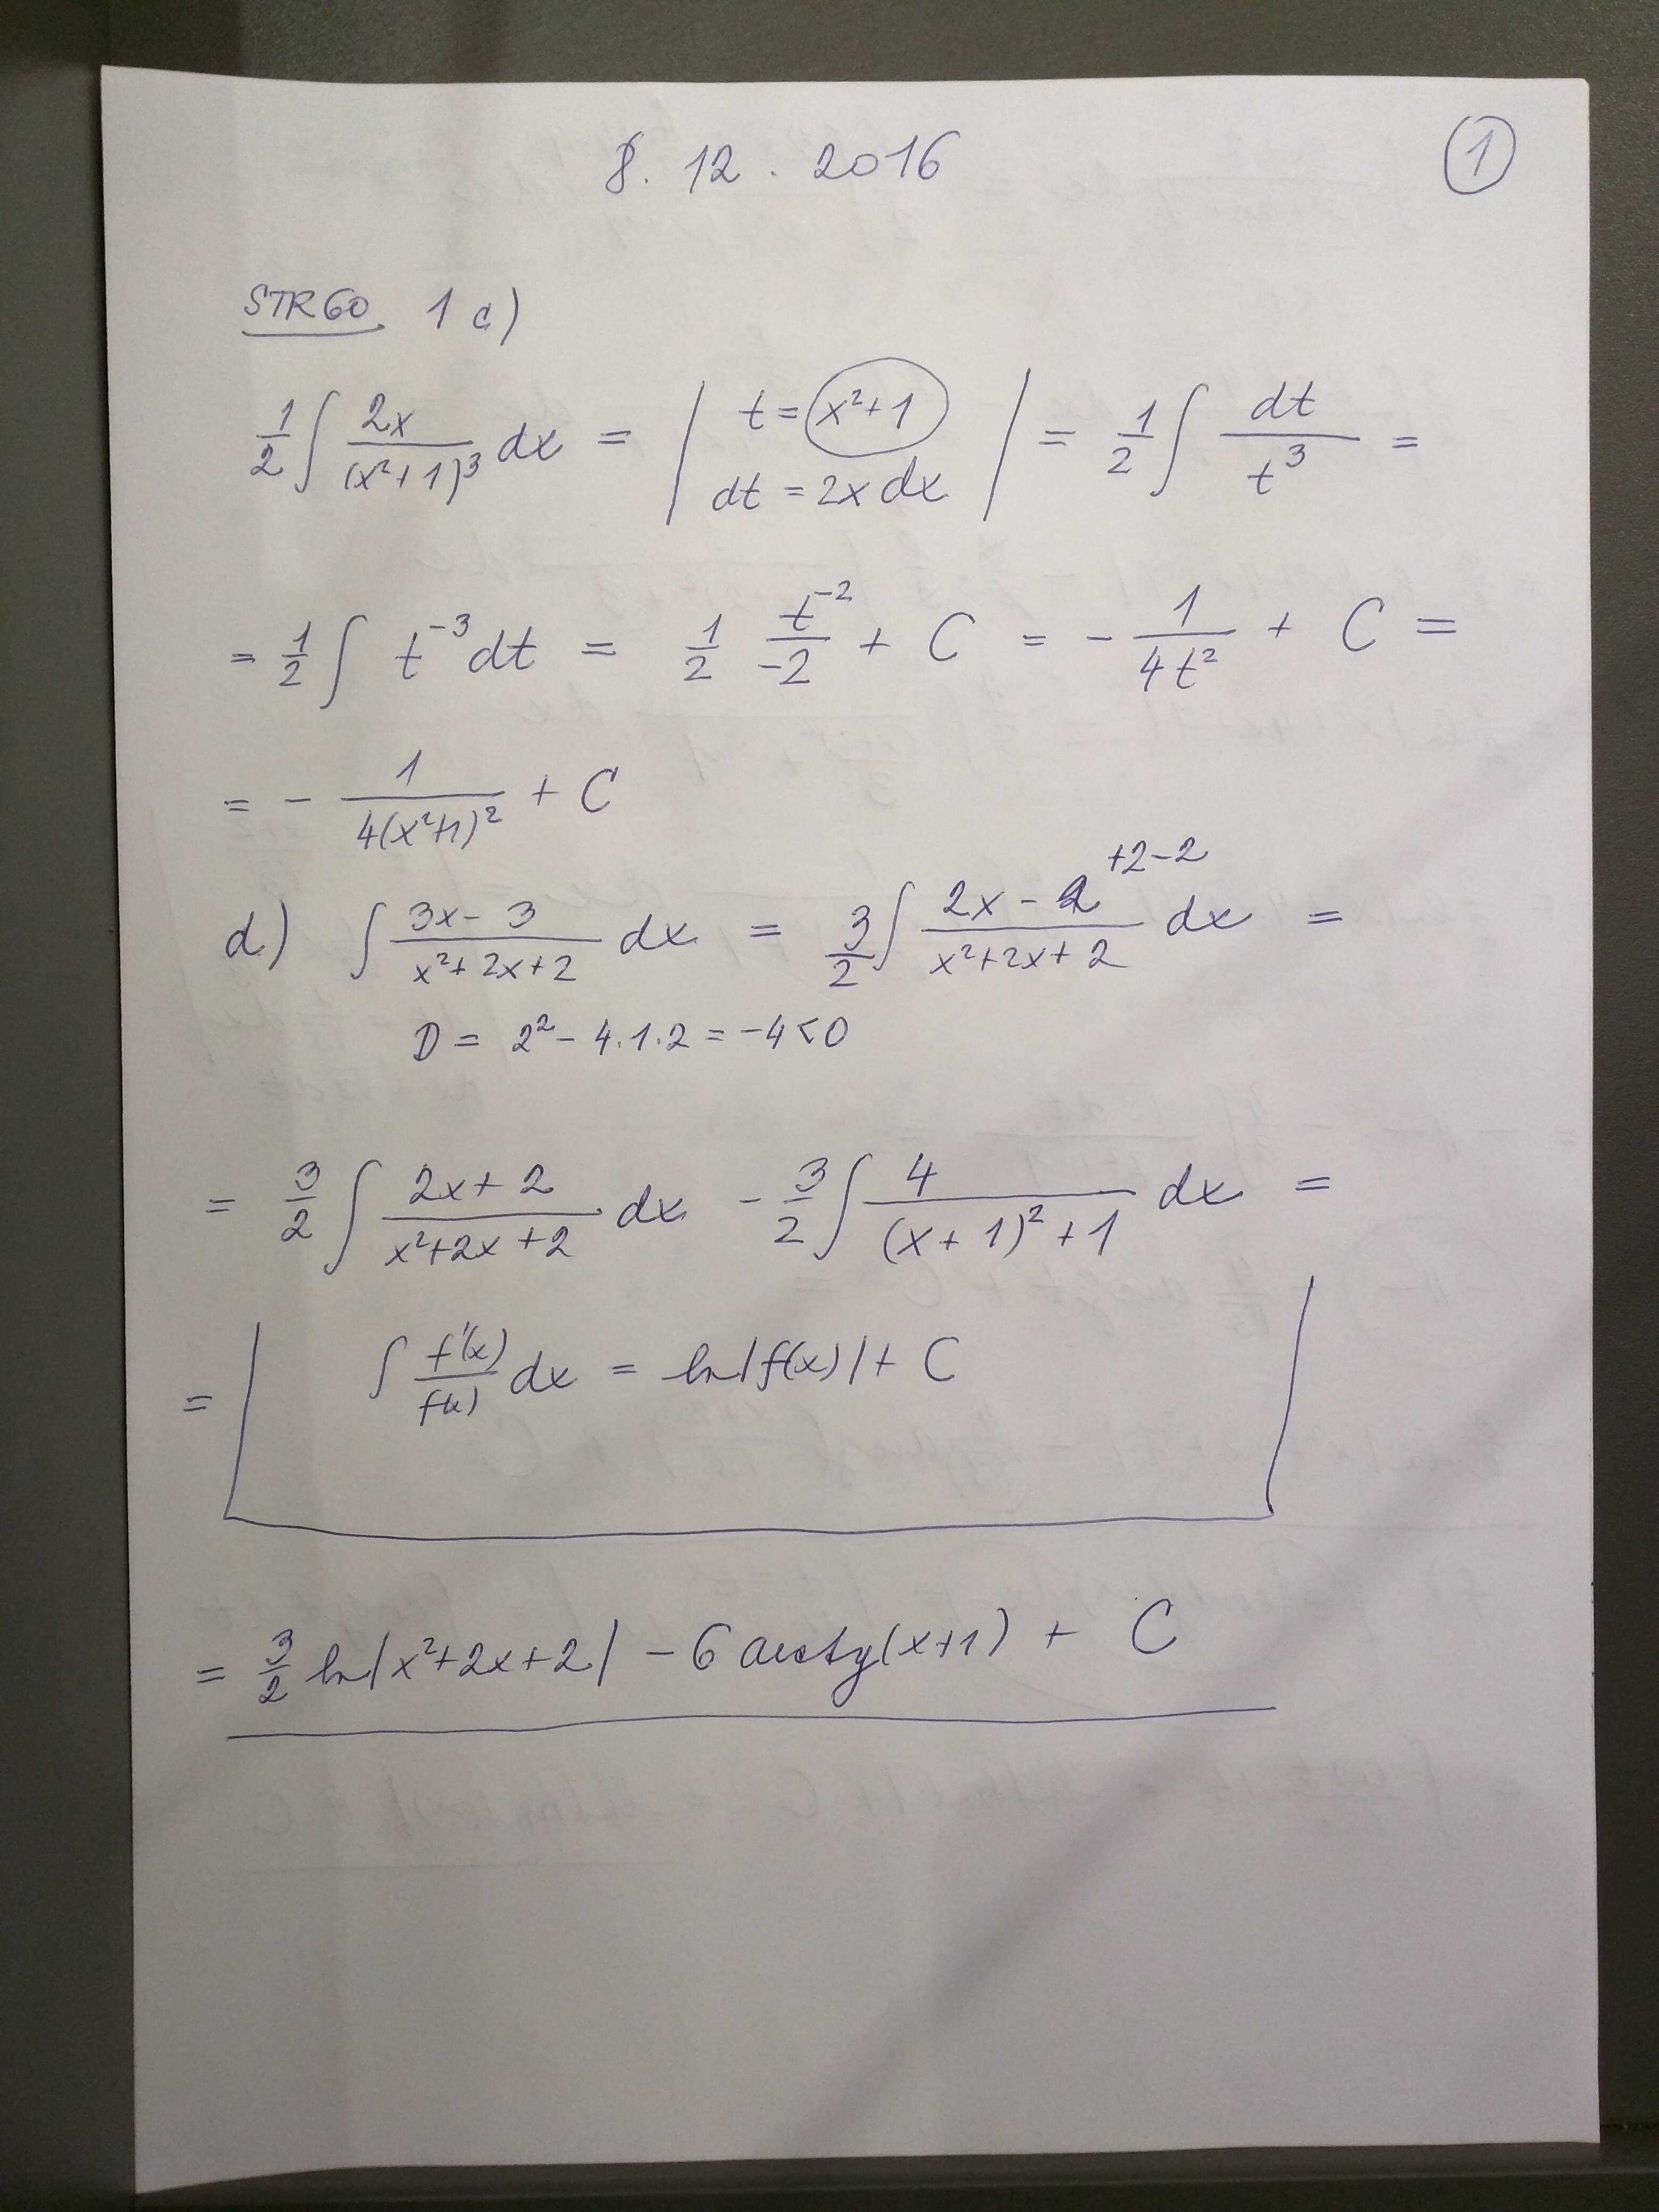 8. 12. 2016 1
STR60 1 c)
1/2 ∫ 2x/(x²+1)³ dx = | t = x²+1 dt = 2x dx | = 1/2 ∫ dt/t³ =
= 1/2 ∫ t⁻³ dt = 1/2 t⁻²/-2 + C = - 1/4t² + C =
= - 1/4(x²+1)² + C
d) ∫ 3x-3/x²+2x+2 dx = 3/2 ∫ 2x-2+2-2/x²+2x+2 dx =
D = 2² - 4.1.2 = -4<0
= 3/2 ∫ 2x+2/x²+2x+2 dx - 3/2 ∫ 4/(x+1)²+1 dx =
= | ∫ f'(x)/f(x) dx = ln|f(x)| + C |
= 3/2 ln|x²+2x+2| - 6 arctg(x+1) + C